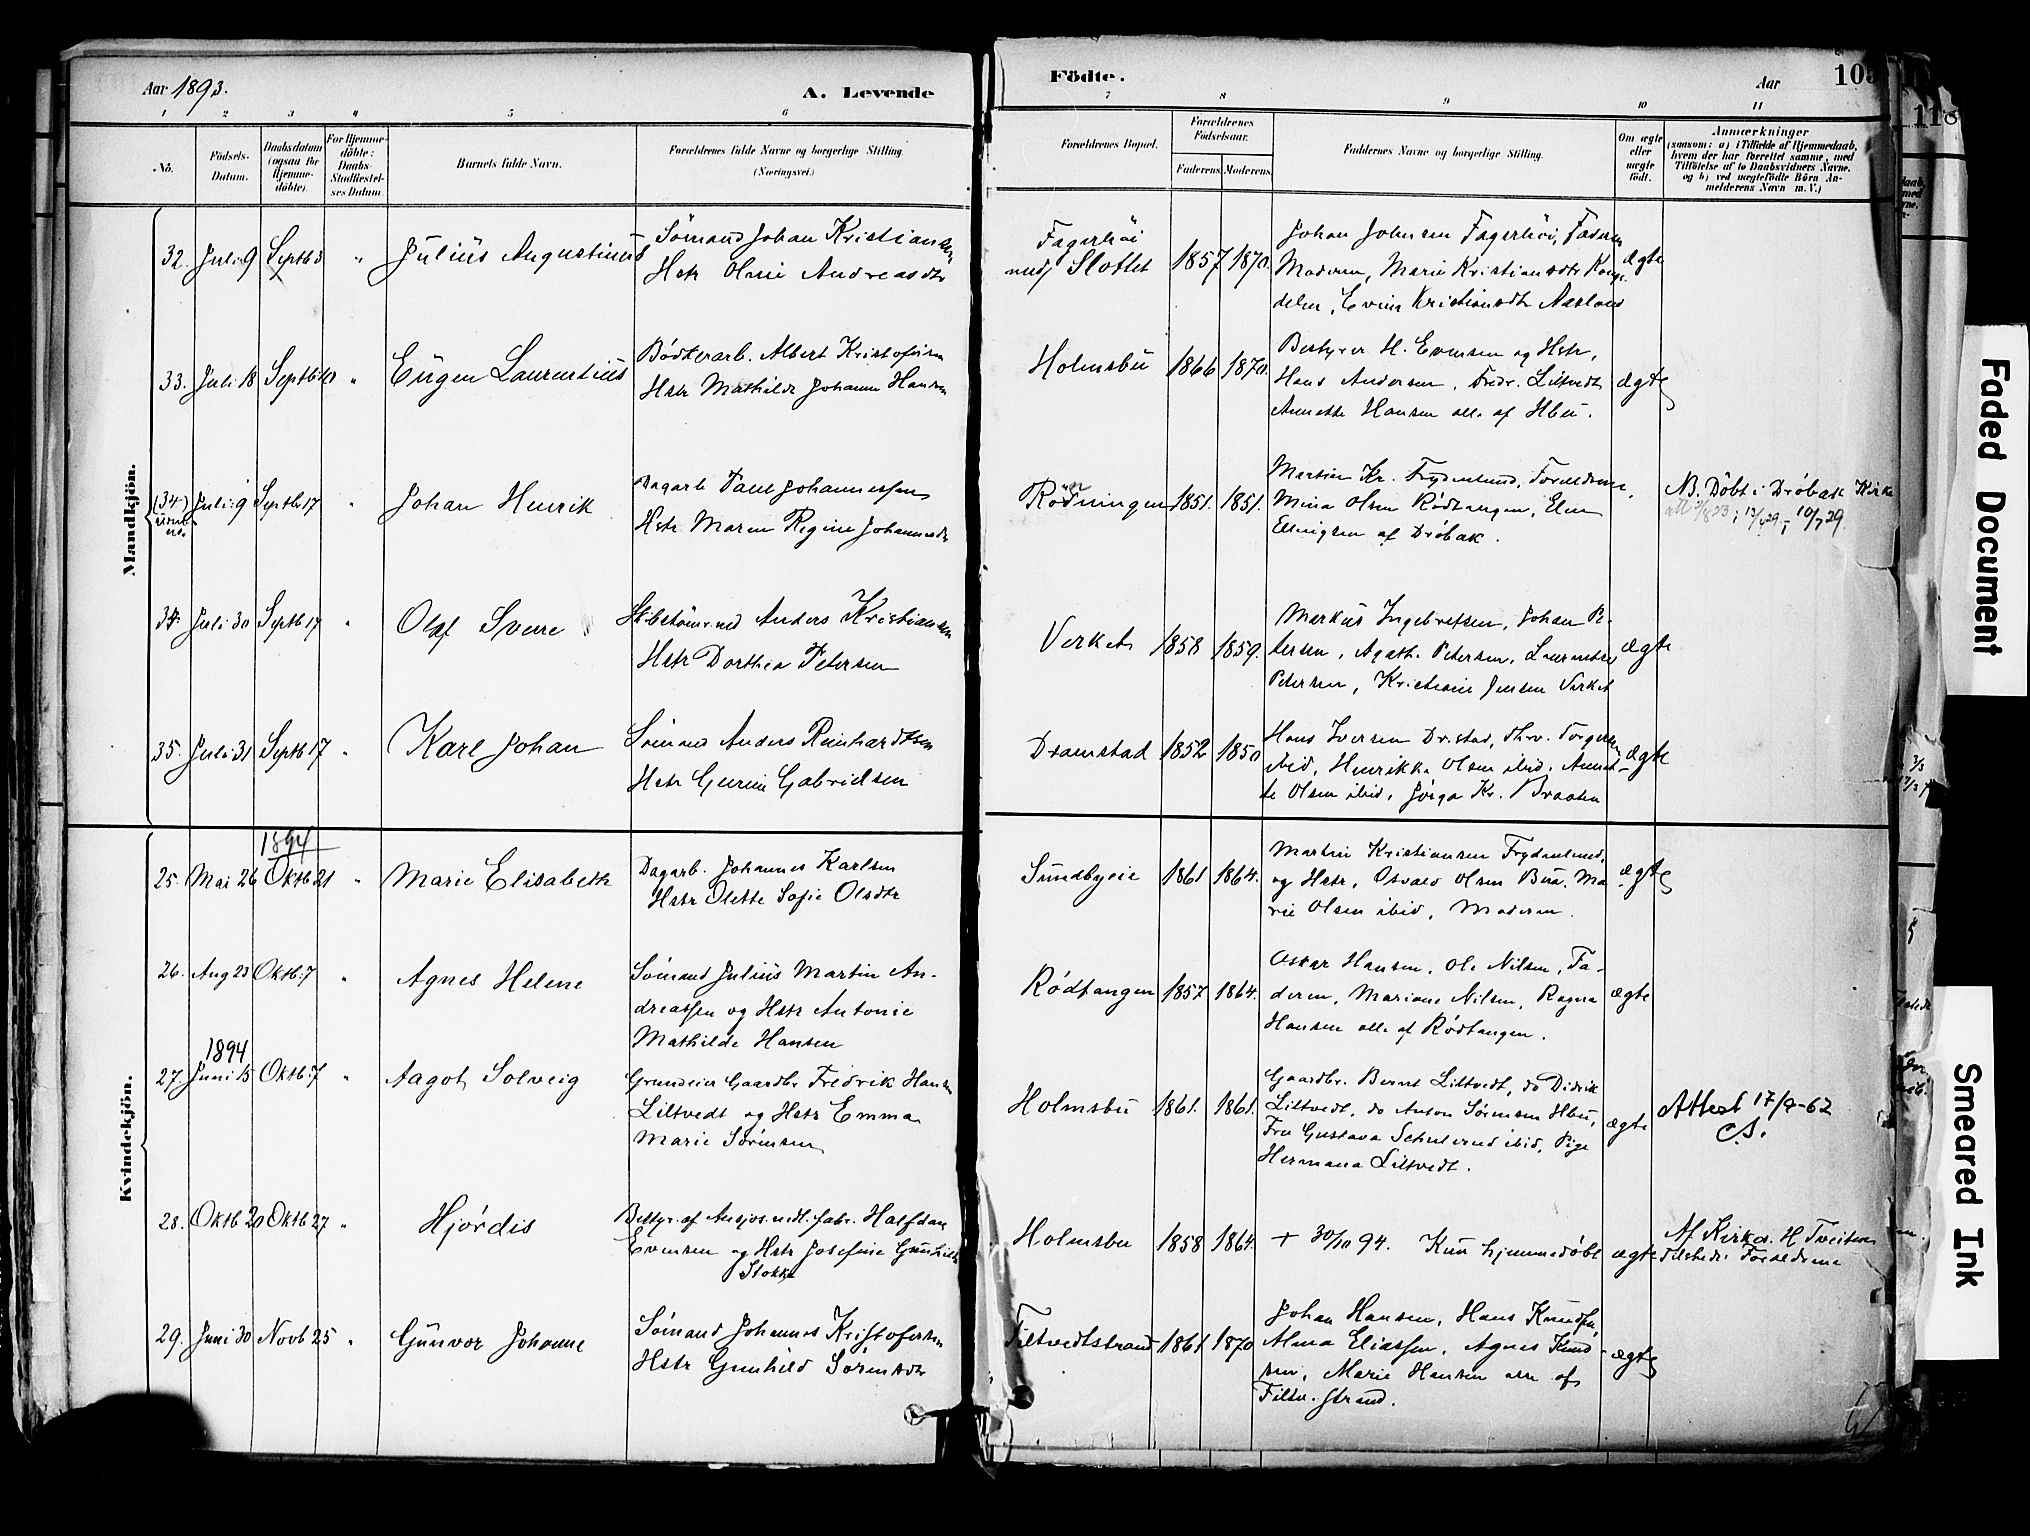 Aar 1893.
A. Levende
Födte.
Aar
105
118
1 2 3 4 5 6 7 8 9 10 11
No.
Födsels-
Datum.
Daabsdatum
(ogsaa for
Hjemme-
döbte).
For Hjemme-
döbte:
Daabs-
Stadfæstel-
ses Datum
Barnets fulde Navn.
Forældrenes fulde Navne og borgerlige Stilling
(Næringsvei.)
Forældrenes Bopæl.
Forældrenes
Födselsaar.
Faderens. Moderens.
Faddernes Navne og borgerlige Stilling.
Om ægte
eller
uægte
födt.
Anmærkninger
(saasom: a) i Tilfælde af Hjemmedaab,
hvem der har forrettet samme, med
Tilföielse af to Daabsvidners Navne.
og b) ved uægtefödte Börn An-
melderens Navn m. V.)
Mandkjön.
32. Juli 9 Septb 3 " Julius Augustinus
Sömand Johan Kristiansen
Hstr Oline Andreasdtr
Fagerhöi
Slottet 1857 1870.
Johan Johnsen Fagerhöi, Faderen
Moderen, Marie Kristiansdtr
Kristiansdtr ægte
33. Juli 18 Septb 10 " Eugen Laurentius
Bödkerarb. Albert Kristofersen
Hstr Mathilde Johanne Hansen
Holmsbu 1866 1870.
Bestyrer H. Evensen og Hstr,
Hans Andersen, Fredr. Liltvedt
Annette Hansen alle af Hbu. ægte
(34) Juli 9 Septb 17 " Johan Henrik
Dagarb Paul Johannessen
Hstr Maren Regine Johannesdtr
Rödningen 1851. 1851.
Martin Kr. Frydenlund, Forældrene,
Mina Olsen Rödtangen, Elen
Ellingsen af Dröbak.
NB. Döbt i Dröbak Kirke
10/7 29.
34. Juli 30 Septb 17 " Olaf Sverre
Skibstömrmd Anders Kristiansen
Hstr Dorthea Petersen
Verket 1858 1859.
Markus Ingebretsen, Johan Pe-
tersen, Agath. Petersen,
Petersen, Kristiane Jensen Verket
ægte
35. Juli 31 Septb 17 " Karl Johan
Sömand Anders Reinhardtsen
Hstr Gurine Gabrielsen
Dramstad 1852 1850
Hans Iversen Dr.stad, Thrv. Torgersen
ibid, Henrikke Olsen ibid, Annet-
te Olsen ibid, Kr. Braaten
ægte
Kvindekjön.
1894
25. Mai 26 Oktb 21 " Marie Elisabeth
Dagarb. Johannes Karlsen
Hstr Olette Sofie Olsdtr
Sundbyeie 1861 1864.
Martin Kristiansen Frydenlund,
og Hstr, Osvald Olsen Bua, Ma-
rie Olsen ibid, Moderen.
ægte
26. Aug 23 Oktb. 7 " Agnes Helene
Sömand Julius Martin An-
dreassen og Hstr Antonie
Mathilde Hansen
Rödtangen 1857 1864.
Oskar Hansen, Ole Nilsen, Fa-
deren, Mariane Nilsen, Ragna
Hansen alle af Rödtangen.
ægte
1894
27. Juni 15 Oktb. 7 " Aagot Solveig
Grundeier Gaardbr Fredrik Hansen
Liltvedt og Hstr Emma
Marie Sörensen
Holmsbu 1861. 1861.
Gaardbr. Bernt Liltvedt, do Didrik
Liltvedt, do Anton Sörensen Hbu,
Fru Gustava ibid, Pige
Hermana Liltvedt.
ægte
Attest 17/9-62
28. Oktb 20 Oktb 27 " Hjördis
Bestyr. af Ansjosnedl. fabr. Halfdan
Evensen og Hstr Josefine Gunhilde
Stokke
Holmsbu 1858 1864.
+ 30/10 94. Kun hjemmedöbt ægte
Af Kirkes. H Tveiten
tilstede: Forældrene
29. Juni 30 Novb 25 " Gunvor Johanne
Sömand Johannes Kristofersen
Hstr Gunhild Sörensdtr
Filtvedtstrand 1861 1870
Johan Hansen, Hans Knudsen,
Alma Eliassen, Agnes Knud-
sen, Marie Hansen alle af
Filtv. strand.
ægte
Faded Document
Smeared Ink